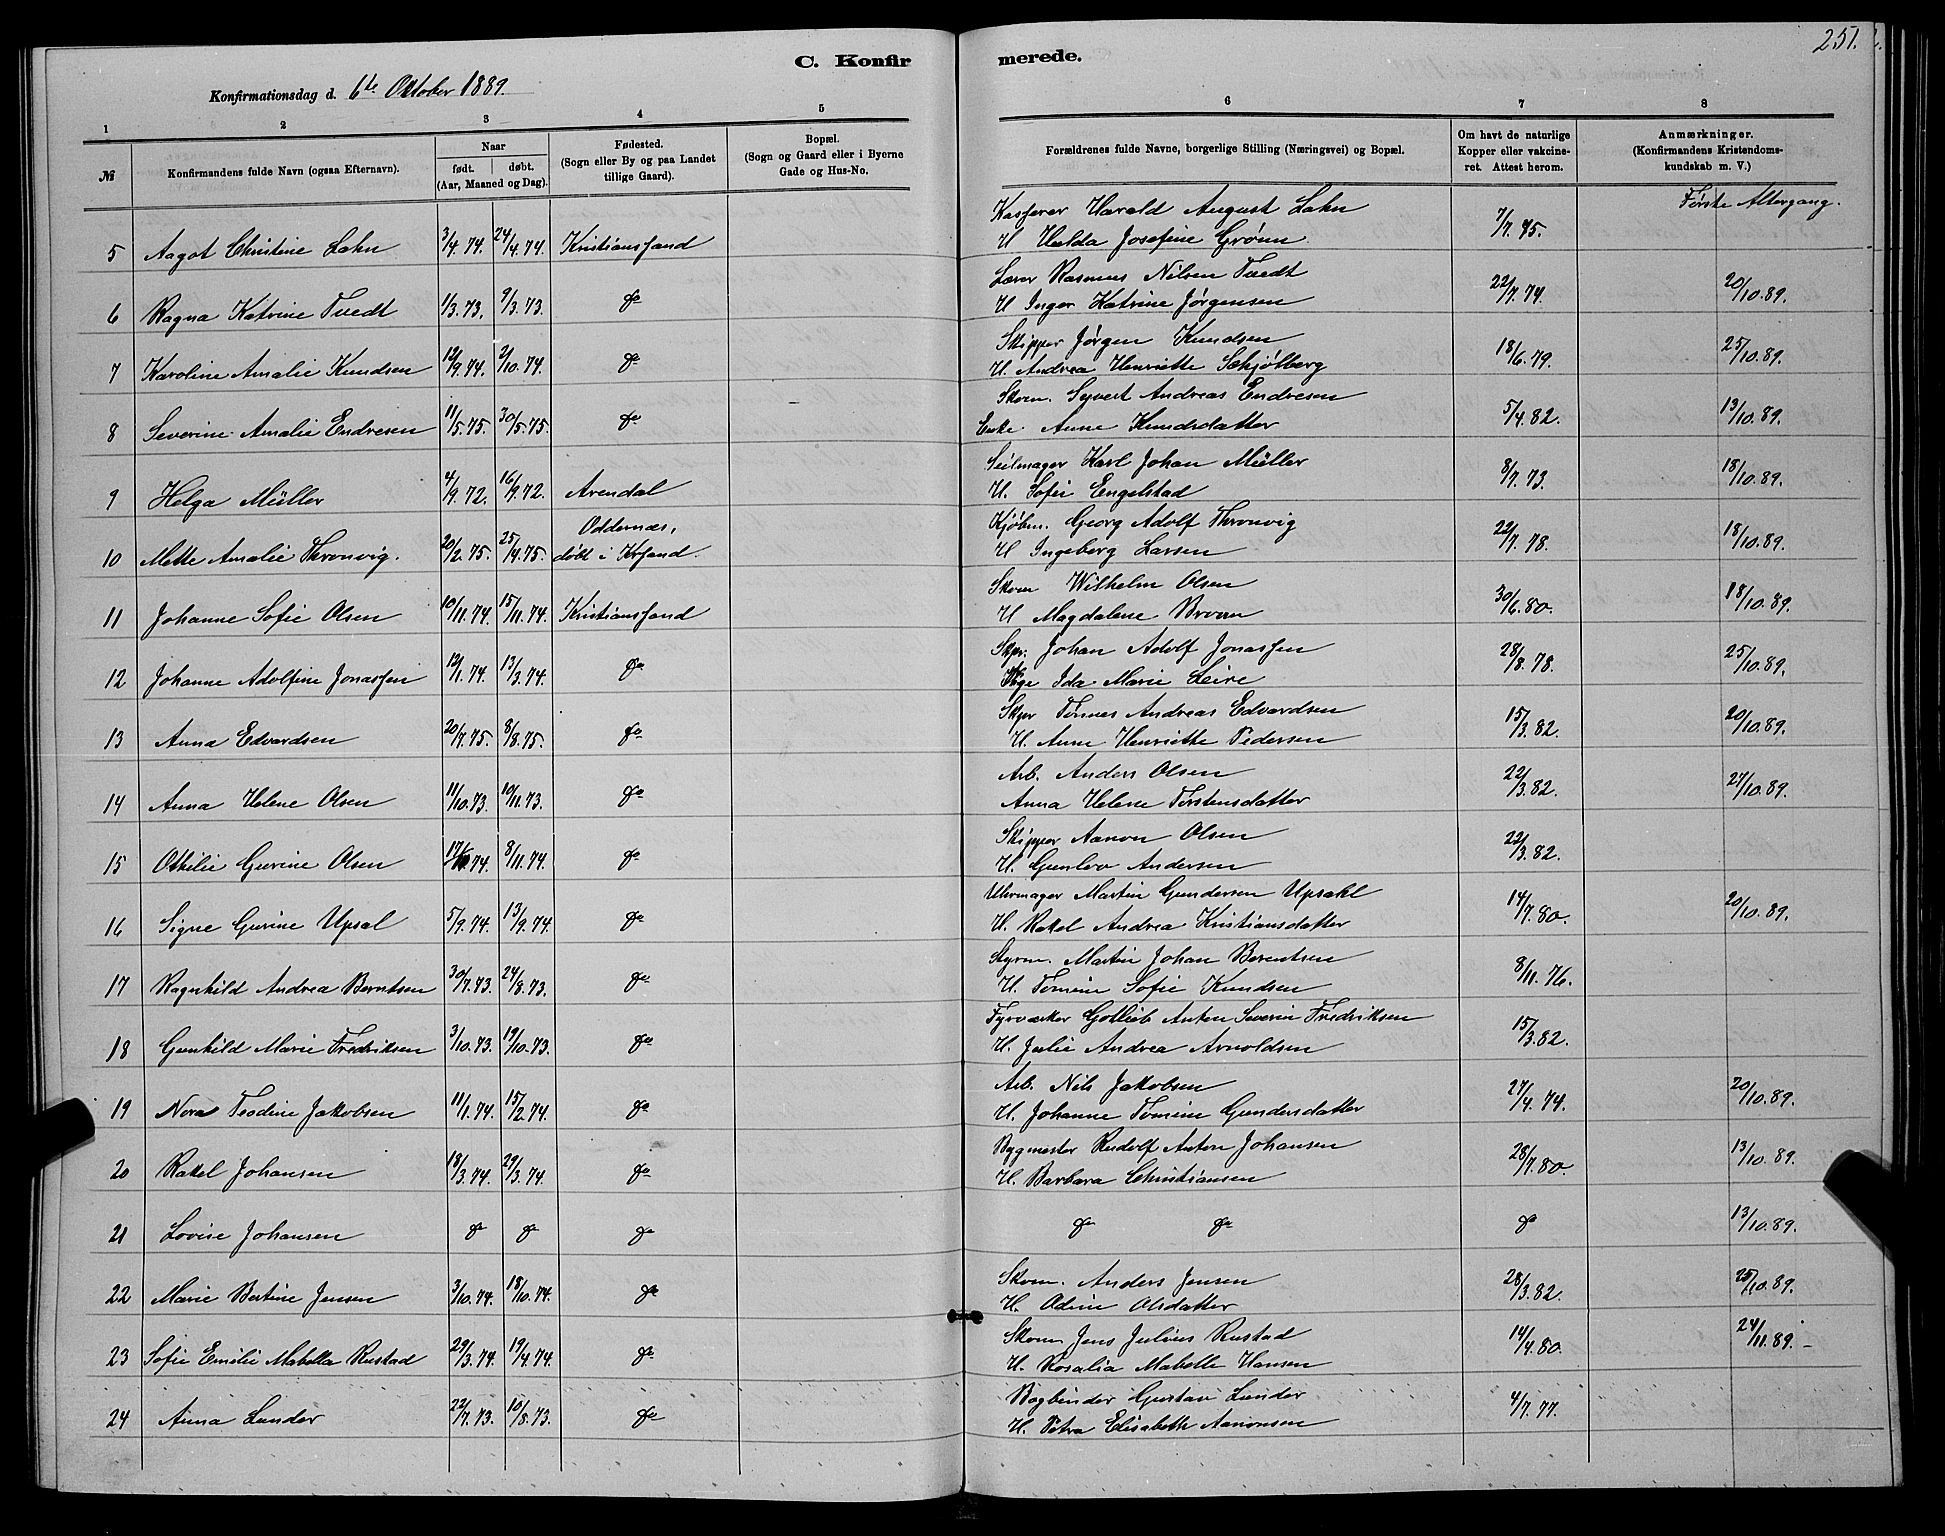 251.
C. Konfirmerede.
Konfirmationsdag d. 6te Oktober 1889.
1 2 3 4 5 6 7 8
№
Konfirmandens fulde Navn (ogsaa Efternavn).
Naar
født. døbt.
(Aar, Maaned og Dag).
Fødested.
(Sogn eller By og paa Landet
tillige Gaard).
Bopæl.
(Sogn og Gaard eller i Byerne
Gade og Hus-No.
Forældrenes fulde Navne, borgerlige Stilling (Næringsvei) og Bopæl.
Om havt de naturlige
Kopper eller vakcine-
ret. Attest herom.
Anmærkninger.
(Konfirmandens Kristendoms-
kundskab m. V.)
Første Altergang.
Kasserer Harald August Lahn
5 Aagot Christine Lahn 3/4.74. 24/4.74. Kristianssand H Hulda Josefine Grønn. 7/7.75.
Lærer Rasmus Nilsen Tvedt
6 Ragna Katrine Tvedt 1/3.73. 9/3.73. do H Inger Katrine Jørgensen 22/7.74. 20/10.89.
Skipper Jørgen Knudsen
7 Karoline Amalie Knudsen 12/9.74. 2/10.74. do H. Andrea Henriette Schjølberg 18/6.79. 25/10.89.
Skom. Syvert Andreas Endresen
8 Severine Amalie Endresen 11/5.75. 30/5.75. do Enke Anne Knudsdatter 5/4.82. 13/10.89.
Seilmager Karl Johan Müller
9 Helga Müller 4/9.72. 16/9.72. Arendal H. Sofie Engelstad 8/7.73. 18/10.89.
Oddernæs, Kjøbm. Georg Adolf Thronvig
10 Mette Amalie Thronvig. 20/2.75. 25/4.75. døbt i Krsand. H Ingeborg Larsen 22/7.78. 18/10.89.
Skom Wilhelm Olsen
11 Johanne Sofie Olsen 10/11.74. 15/11.74. Kristianssand H Magdalene Broom 30/6.80. 18/10.89.
Skpr. Johan Adolf Jonassen
12 Johanne Adolfine Jonassen 12/1.74. 13/3.74. do Ida Marie Leire 28/8.78. 25/10.89.
Skpr Tønnes Andreas Edvardsen
13 Anna Edvardsen 20/7.75. 8/8.75. do H. Anne Henriette Pedersen 15/3.82. 20/10.89.
Arb. Anders Olsen
14 Anna Helene Olsen 11/10.73. 10/11.73. do Anna Helene Torstensdatter 22/3.82. 27/10.89.
Skipper Aanon Olsen
15 Othilie Gurine Olsen 17/10 74. 8/11.74. do H. Gunlov Andersen 22/3.82.
Uhrmager Martin Gundersen Upsahl
16 Signe Gurine Upsal 5/9.74. 13/9.74. do H. Rakel Andrea Kristiansdatter 14/7.80. 20/10.89.
Styrm. Martin Johan Berentsen
17 Ragnhild Andrea Berntsen 30/7.73. 24/8.73. do H. Tomine Sofie Knudsen 8/11.76.
Fyrværker Gotlieb Anton Severin Fredriksen
18 Gunhild Marie Fredriksen 3/10.73. 19/10.73. do H. Julie Andrea Arnoldsen 15/3.82.
Arb. Nils Jakobsen
19 Nora Teodine Jakobsen 11/1.74. 15/2.74. do H. Johanne Tomine Gundersdatter 27/4.74. 20/10.89.
Bygmester Rudolf Anton Johansen
20 Rakel Johansen 18/3.74. 29/3.74. do H. Barbara Christiansen 28/7.80. 13/10.89.
21 Lovise Johansen do do do do do do 13/10.89.
Skom. Anders Jensen
22 Marie Bertine Jensen 3/10.74. 18/10.74. do H. Odine Olsdatter 28/3.82. 25/10.89.
Skom Jens Julius Rustad
23 Sofie Emilie Mabella Rustad 29/3.74. 19/4.74. do H. Rosalia Mabelle Hansen 14/4.80. 24/11.89.
Bogbinder Gustav Lunder
24 Anna Lunder 22/7.73. 10/8.73. do H. Petra Elisabeth Aanonsen 4/7.77.